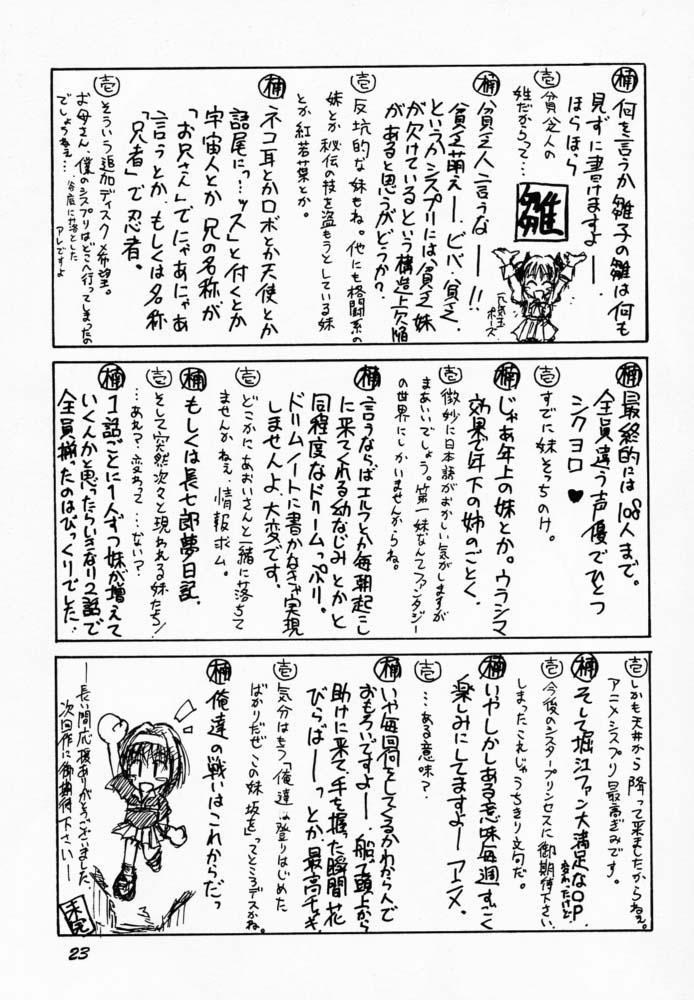 楠 何を言うか雛子の雛は何も
見ずに書けますよー。
ほらほら
壱 貧乏人の
雛だからって…
雛
元気玉
ポーズ
楠 貧乏人言うなーー!!
貧乏萌えー。ビバ、貧乏。
というかシスプリには、貧乏妹
が欠けているという構造上欠陥
があると思うがどうか?
壱 反抗的な妹もね。他にも格闘系の
妹とか秘伝の技を盗もうとしている妹
とか紅若葉とか。
楠 ネコ耳とかロボとか天使とか
語尾に「…ッス」と付くとか
宇宙人とか兄の名称が
「お兄さん」でにゃあにゃあ
言うとか、もしくは名称
「兄者」で忍者。
壱 そういう追加ディスク×希望。
お母さん、僕のシスプリはどこへ行ってしまったの
でしょうねぇ…谷底に落とした
アレですよ
楠 最終的には108人まで。
全員違う声優でひとつ
シクヨロ♥
壱 すでに妹そっちのけ。
楠 じゃあ年上の妹とか。ウラシマ
効果で年下の姉のごとく、
壱 微妙に日本語がおかしい気がしますが
まあいいでしょう。第一妹なんてファンタジー
の世界にしかいませんからね。
楠 言うならばエルフとか毎朝起こし
に来てくれる幼なじみとかと
同程度なドリームっぷり。
ドリームノートに書かなきゃ実現
しませんよ、大変です。
壱 どこかにあおいさんと一緒に落ちて
ませんかねぇ、情報求ム。
楠 もしくは長七郎夢日記、
壱 そして突然次々と現われる妹たち!
…あれ?変わって…ない?
楠 1話ごとに1人ずつ妹が増えて
いくんかと思ったらいきなり2話で
全員揃ったのはびっくりでした!
壱 しかも天井から降って来ましたからねぇ。
アニメシスプリ最高ぎみです。
楠 そして堀江ファン大満足なOP、
変わったけど
壱 今後のシスタープリンセスに御期待下さい、
しまったこれじゃうちきり文句だ。
楠 いやしかしある意味毎週すごく
楽しみにしてますよーアニメ。
壱 …ある意味?
楠 いや毎回何をしてくるかわからんで
おもろいですよー、船で頭上から
助けに来て、手を握った瞬間花
びらばーーっとか最高チャキ。
壱 気分はもう「俺達ぁ登りはじめた
ばかりだぜこの妹坂を」ってところデスかね。
楠 俺達の戦いはこれからだっ
―長い間応援ありがとうございました、
次回作に御期待下さい―
未完
23